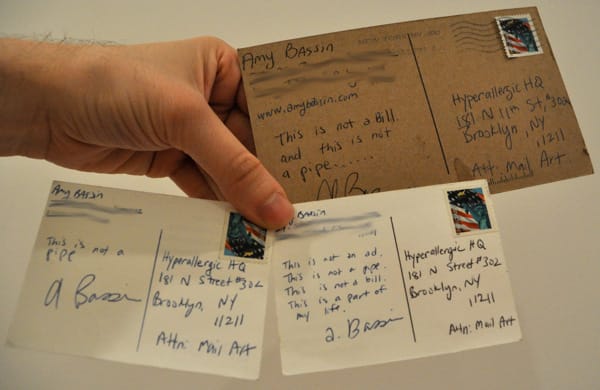 Amy Bassin
www.amybassin.com
This is not a Bill.
and this is not
a pipe......
Hyperallergic HQ
181 N 11th St, #302
Brooklyn, NY
11211
Att: Mail Art.
Amy Bassin
This is not a
pipe
a Bassin
Hyperallergic HQ
181 N Street #302
Brooklyn, NY
11211
Attn: Mail Art
Bassin
This is not an ad.
This is not a pipe.
This is not a bill.
This is a part of
my life.
a. Bassin
Hyperallergic HQ
181 N Street #302
Brooklyn, NY
11211
Attn: Mail Art